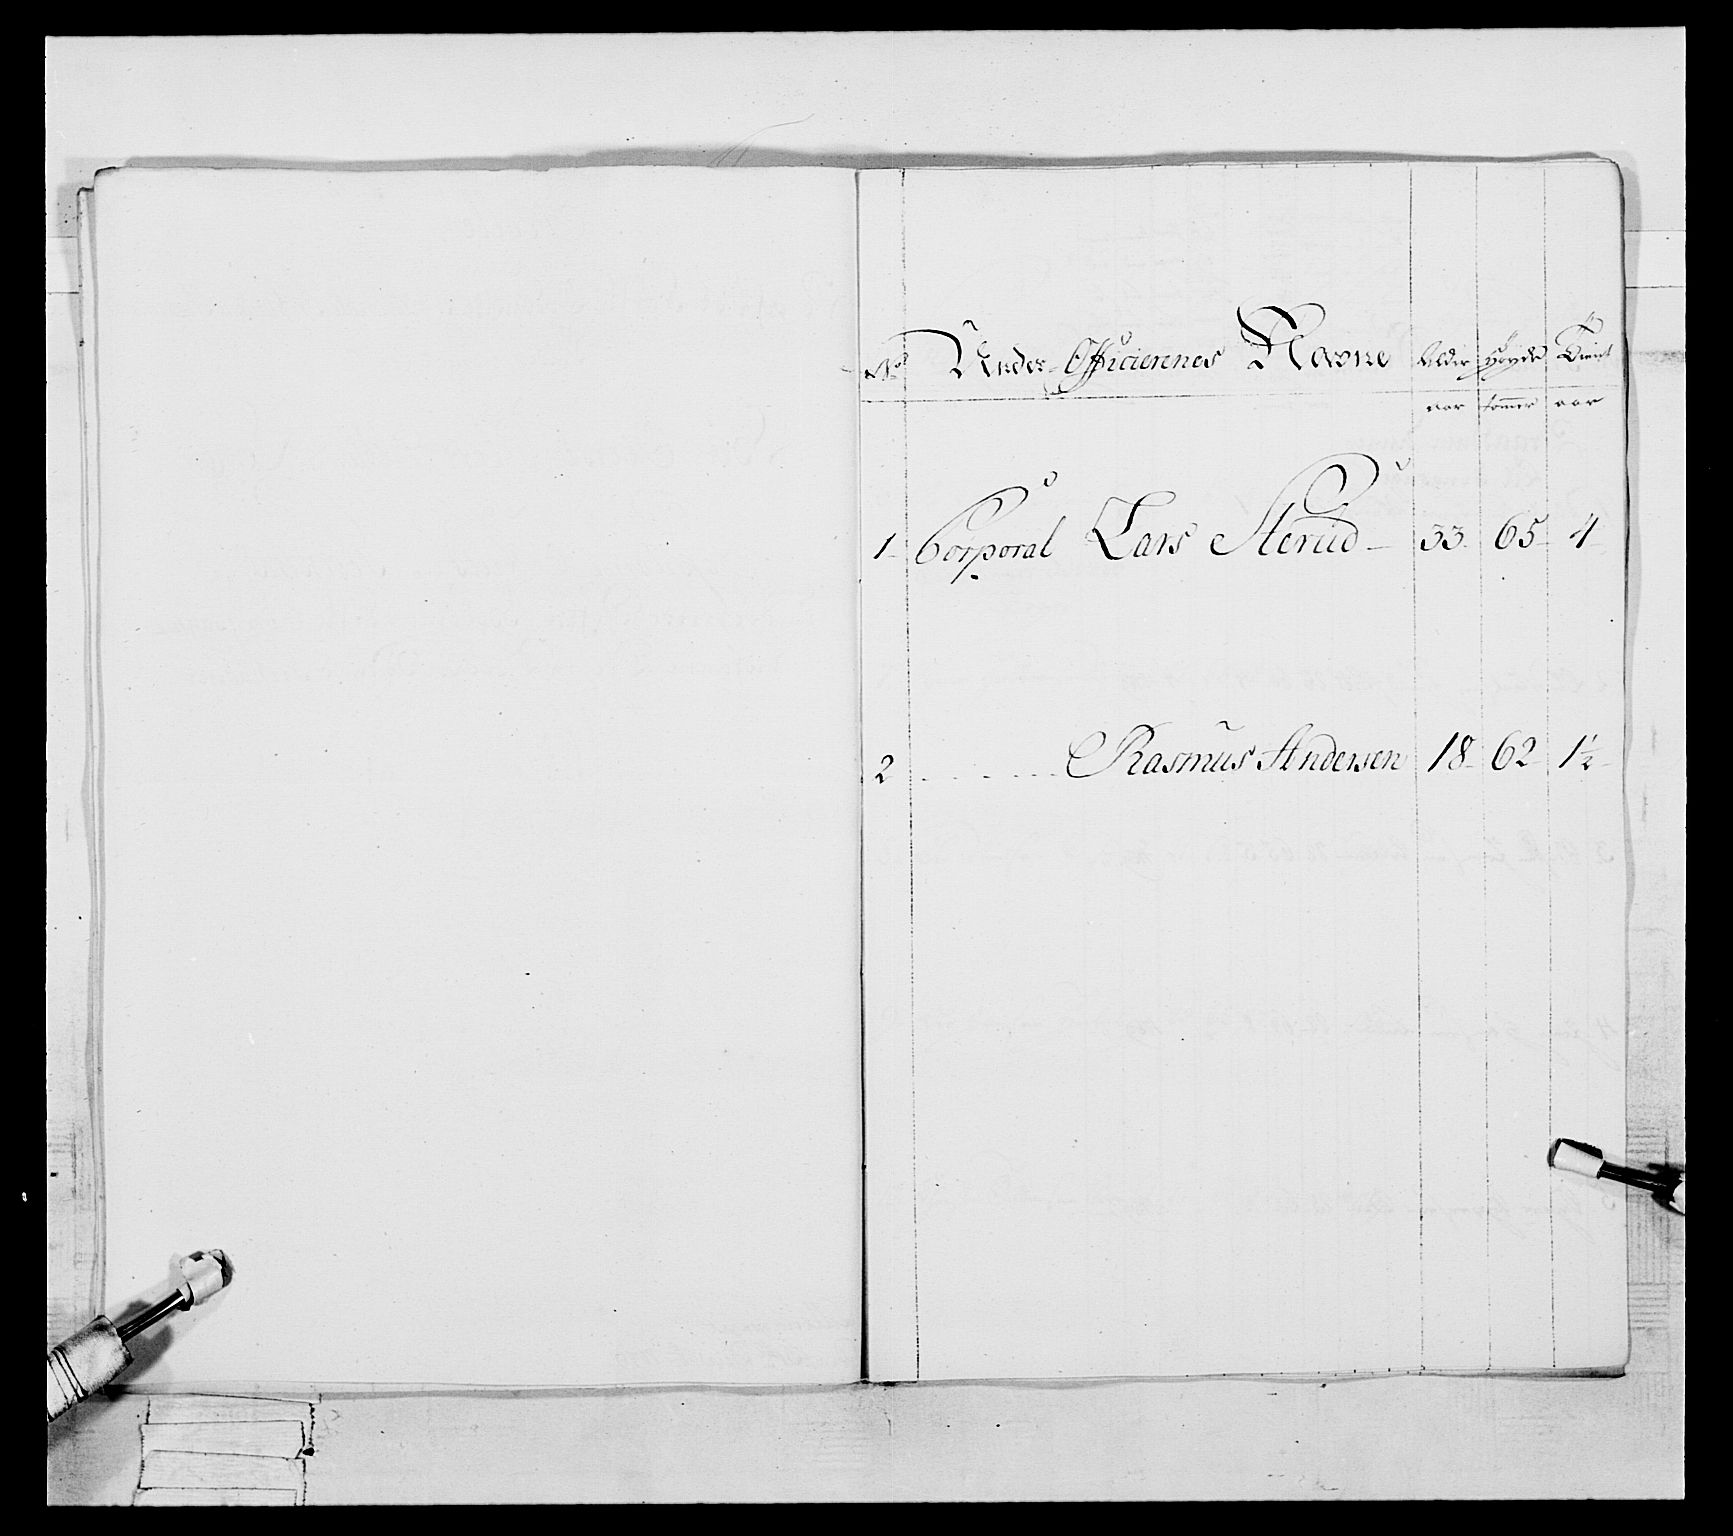 No Under-Officierernes Navne Alder Høyde Tient
aar tommer aar
1 Corporal Lars Sterud 33 65 4
2 - - - - - Rasmus Andersen 18 62 1½